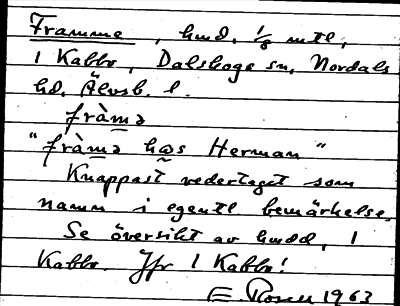 Framme, hmd. 1/8 mtl,
1 Kabbo, Dalskogs sn, Nordals
hd. Älvsb. l.
fràmə
"fràmə hɷs Herman"
Knappast vedertaget som
namn i egentl bemärkelse.
Se översikt av hmdd, 1
Kabbo. Jfr 1 Kabbo!
E. Rosell 1963